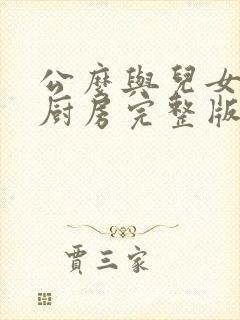 公麼與兒女
厨房完整版
賈三家